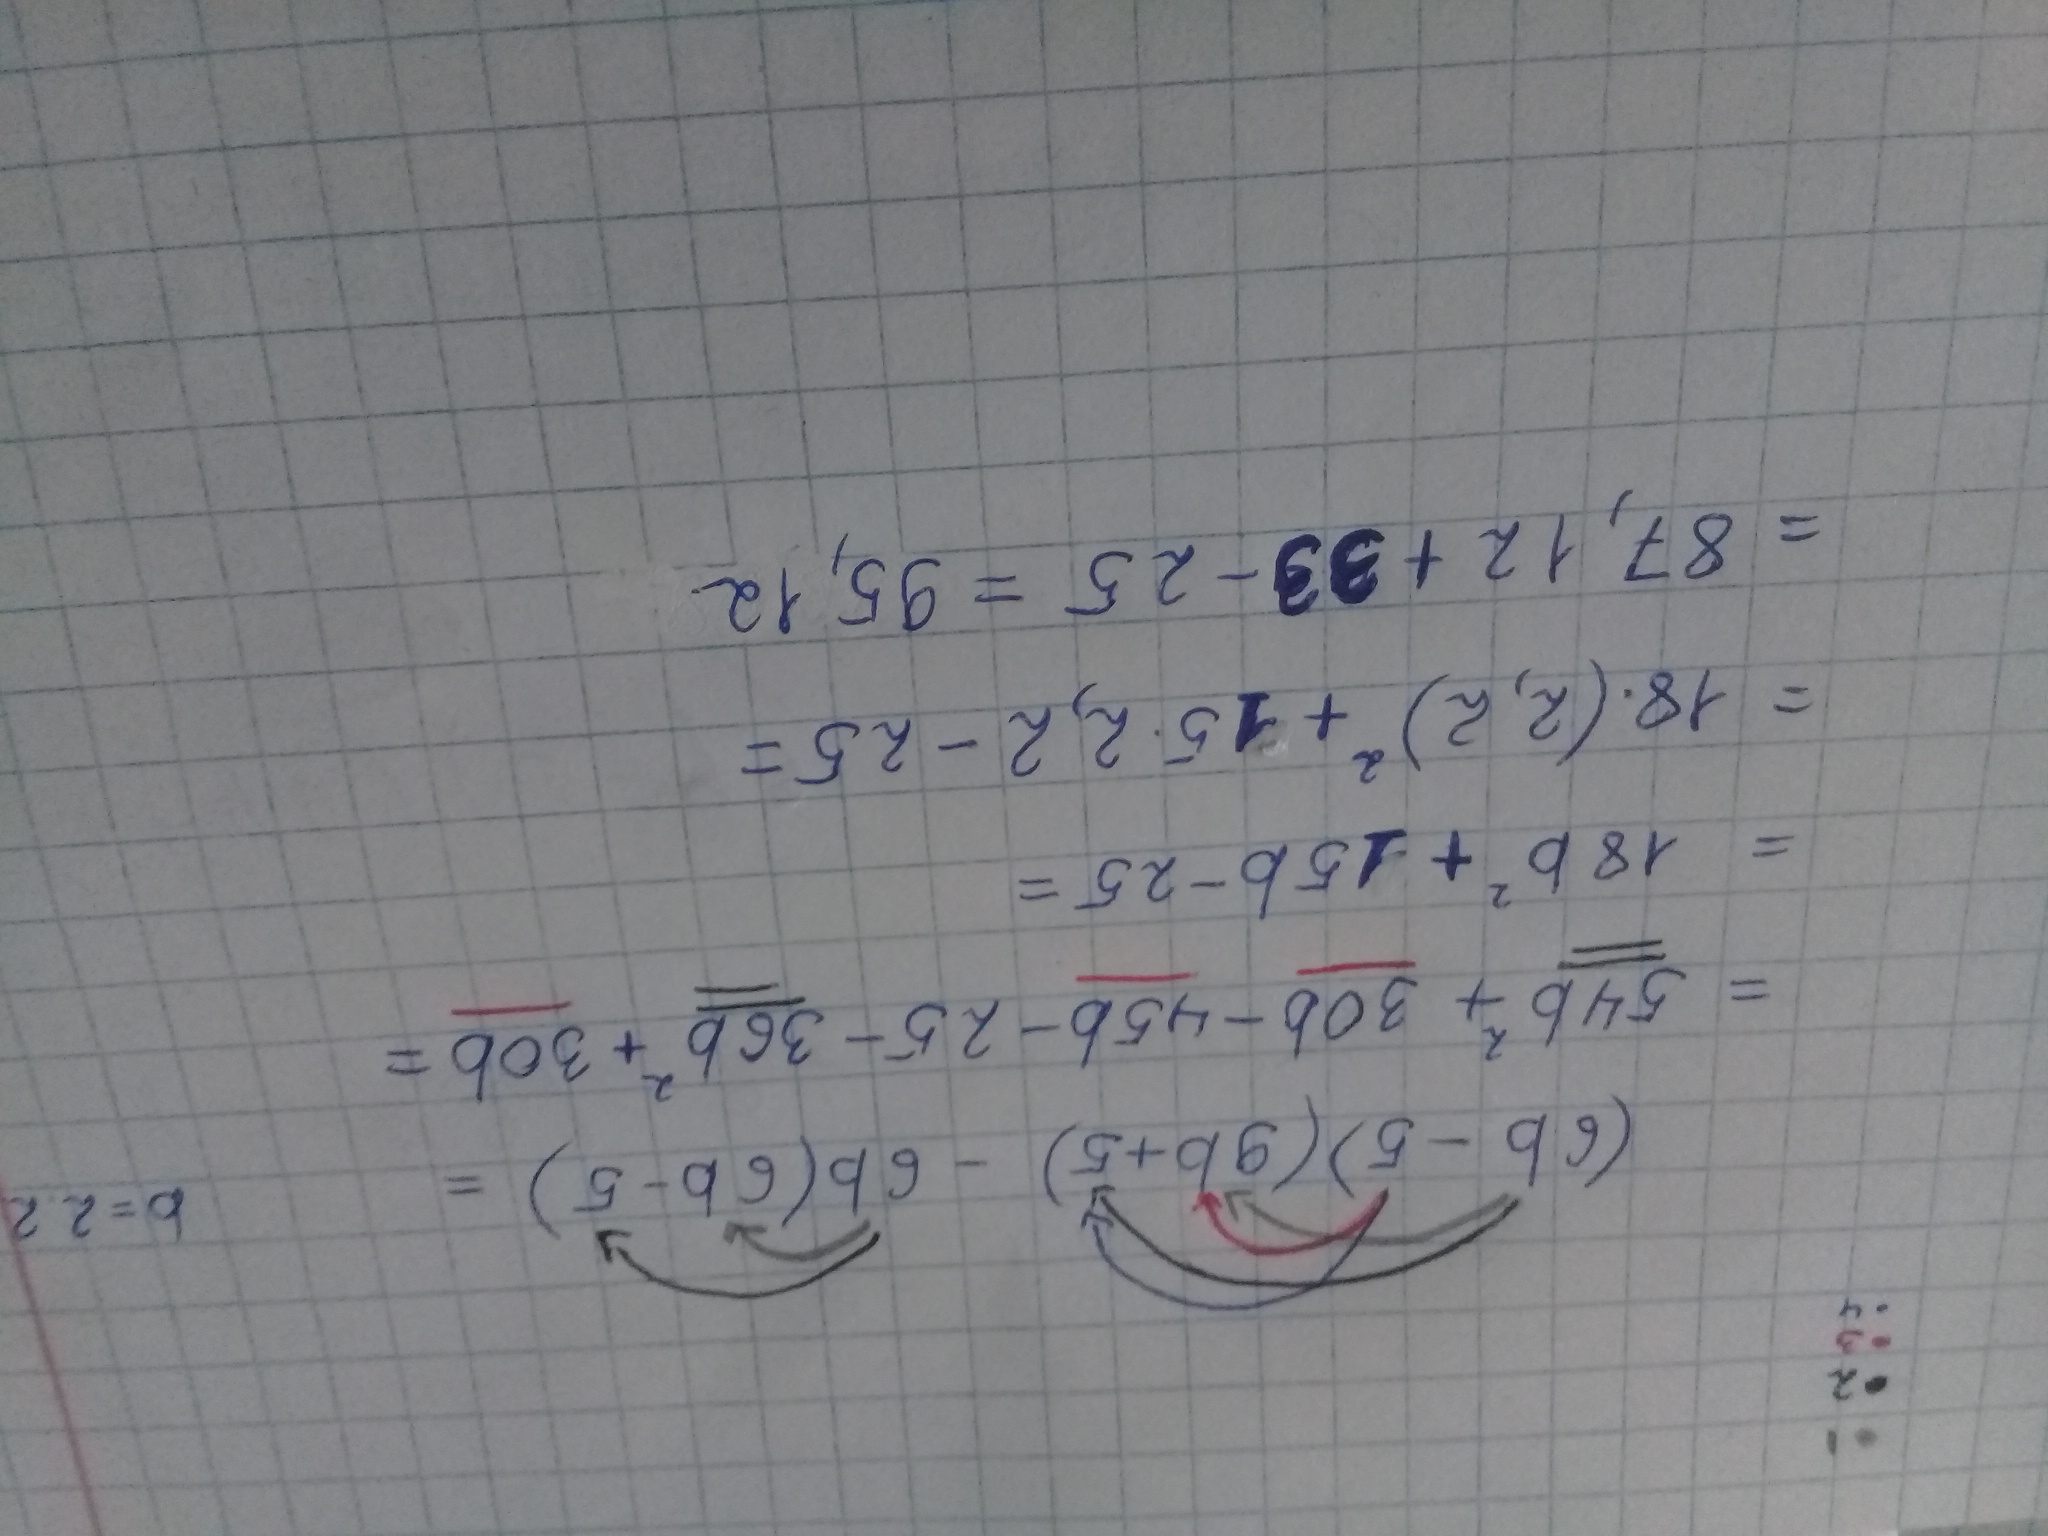 ·1
·2
·3
·4
(6b-5)(9b+5) - 6b(6b-5) = b=2.2
= 54b²+30b-45b-25-36b²+30b=
= 18b²+15b-25=
= 18·(2,2)²+15·2,2-25=
= 87,12+33-25=95,12